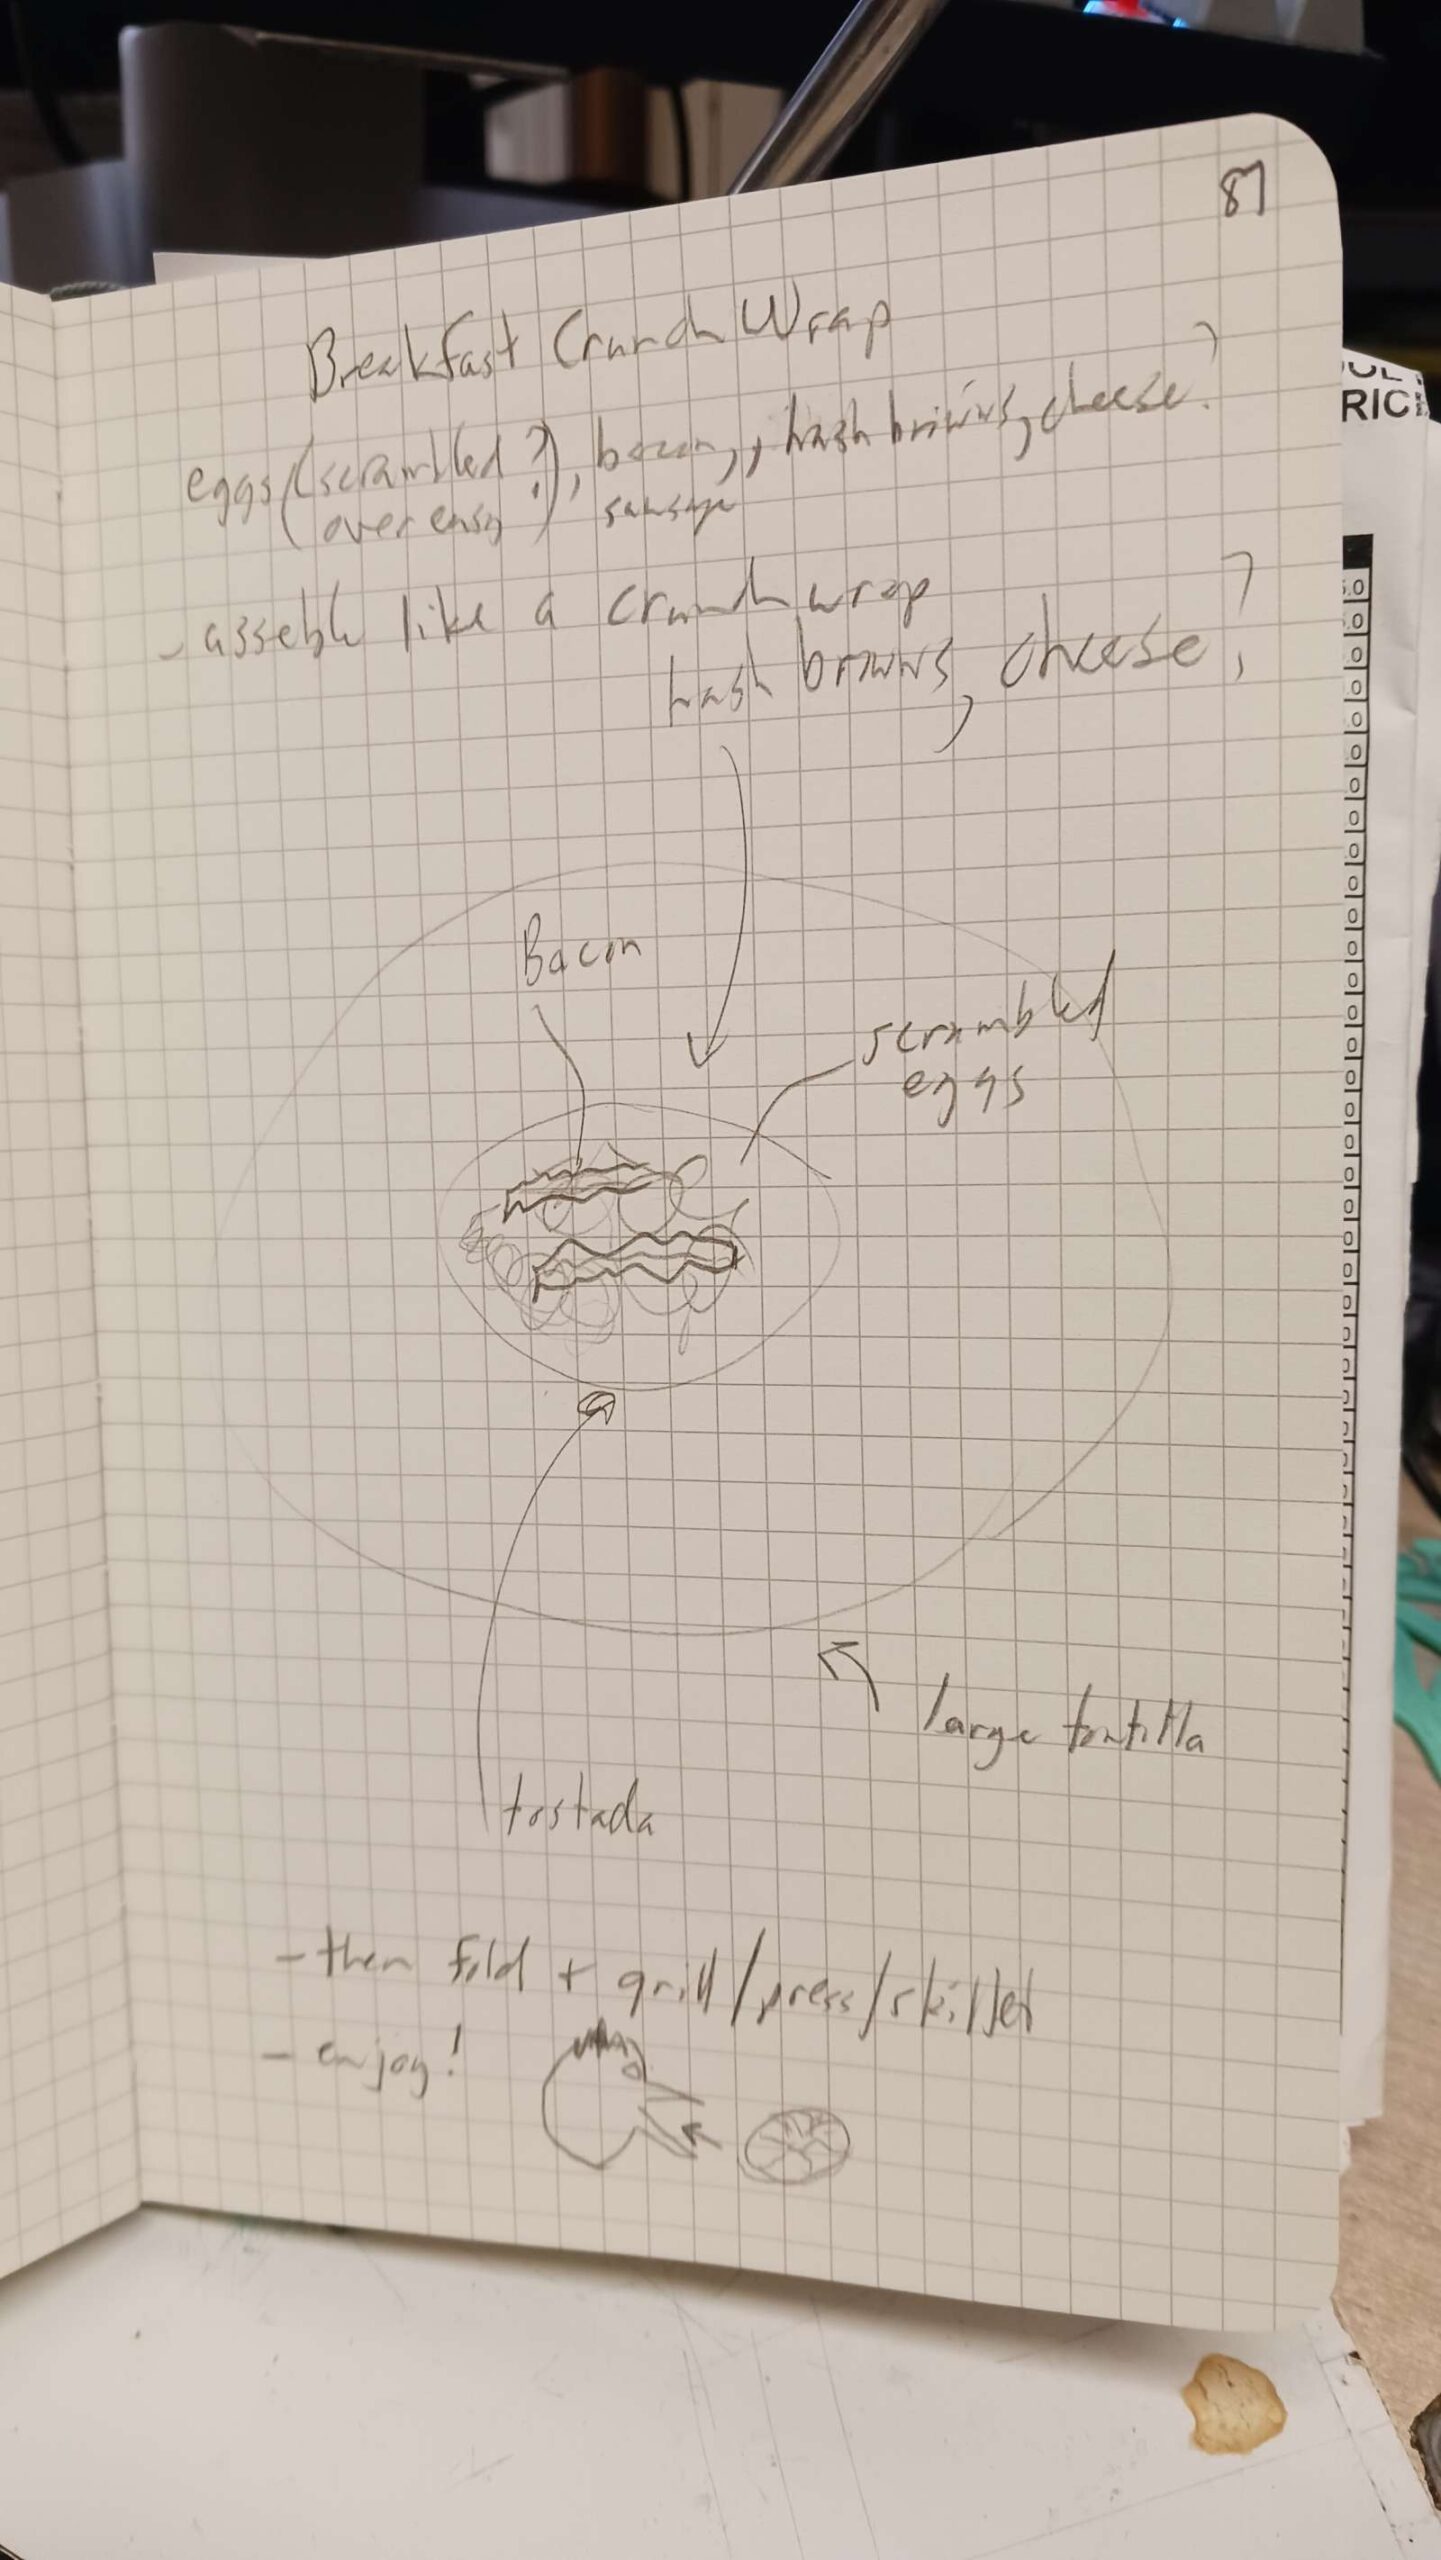 87
Breakfast Crunch Wrap
eggs (scrambled?), bacon, , hash browns, cheese?
(over easy?) sausage
- asseble like a crunch wrap
hash browns, cheese?
Bacon
scrambled
eggs
large tortilla
tostada
- then fold + grill/press/skillet
- enjoy!
RIC